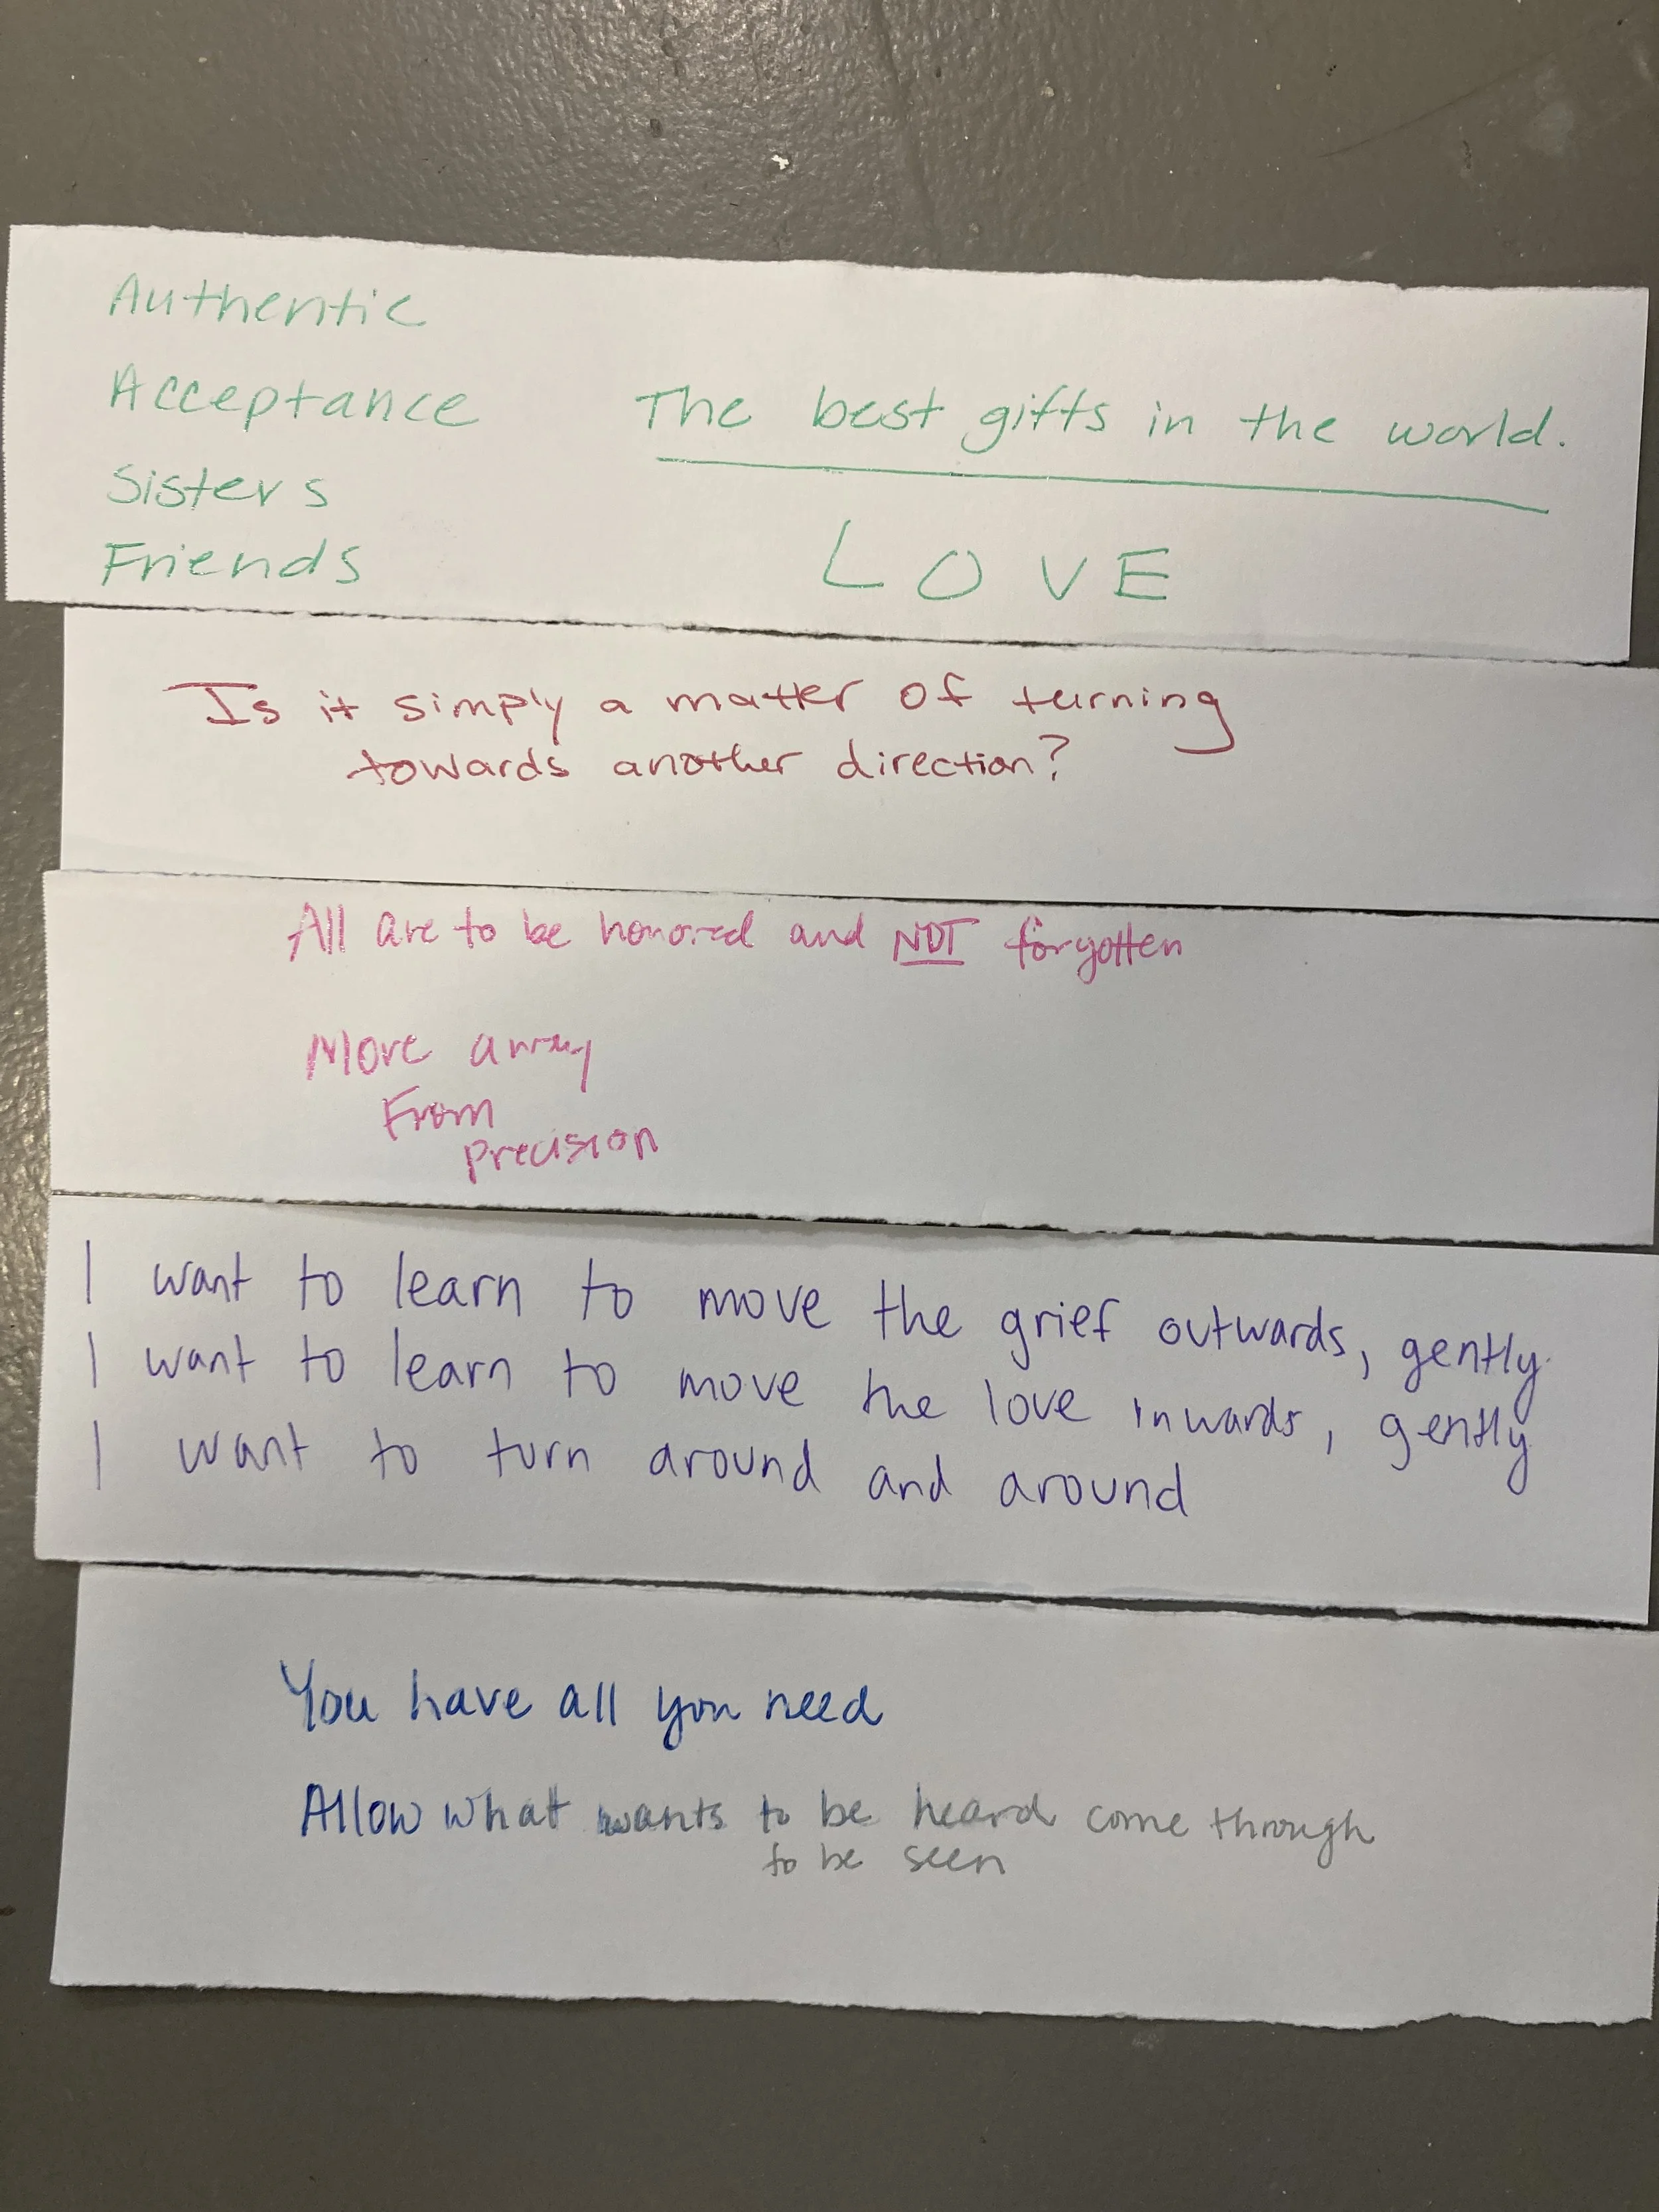 Authentic
Acceptance
Sisters
Friends
The best gifts in the world.
LOVE
Is it simply a matter of turning
towards another direction?
All are to be honored and NOT forgotten
More away
From
precision
I want to learn to move the grief outwards, gently.
I want to learn to move the love inwards, gently
I want to turn around and around
You have all you need
Allow what wants to be heard come through
to be seen